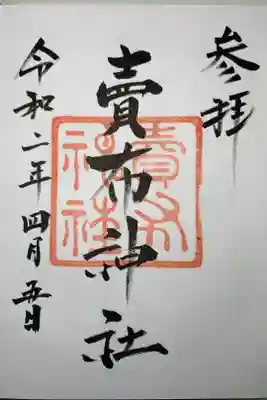 参拝
賣布神社
令和二年四月五日
賣布
神社